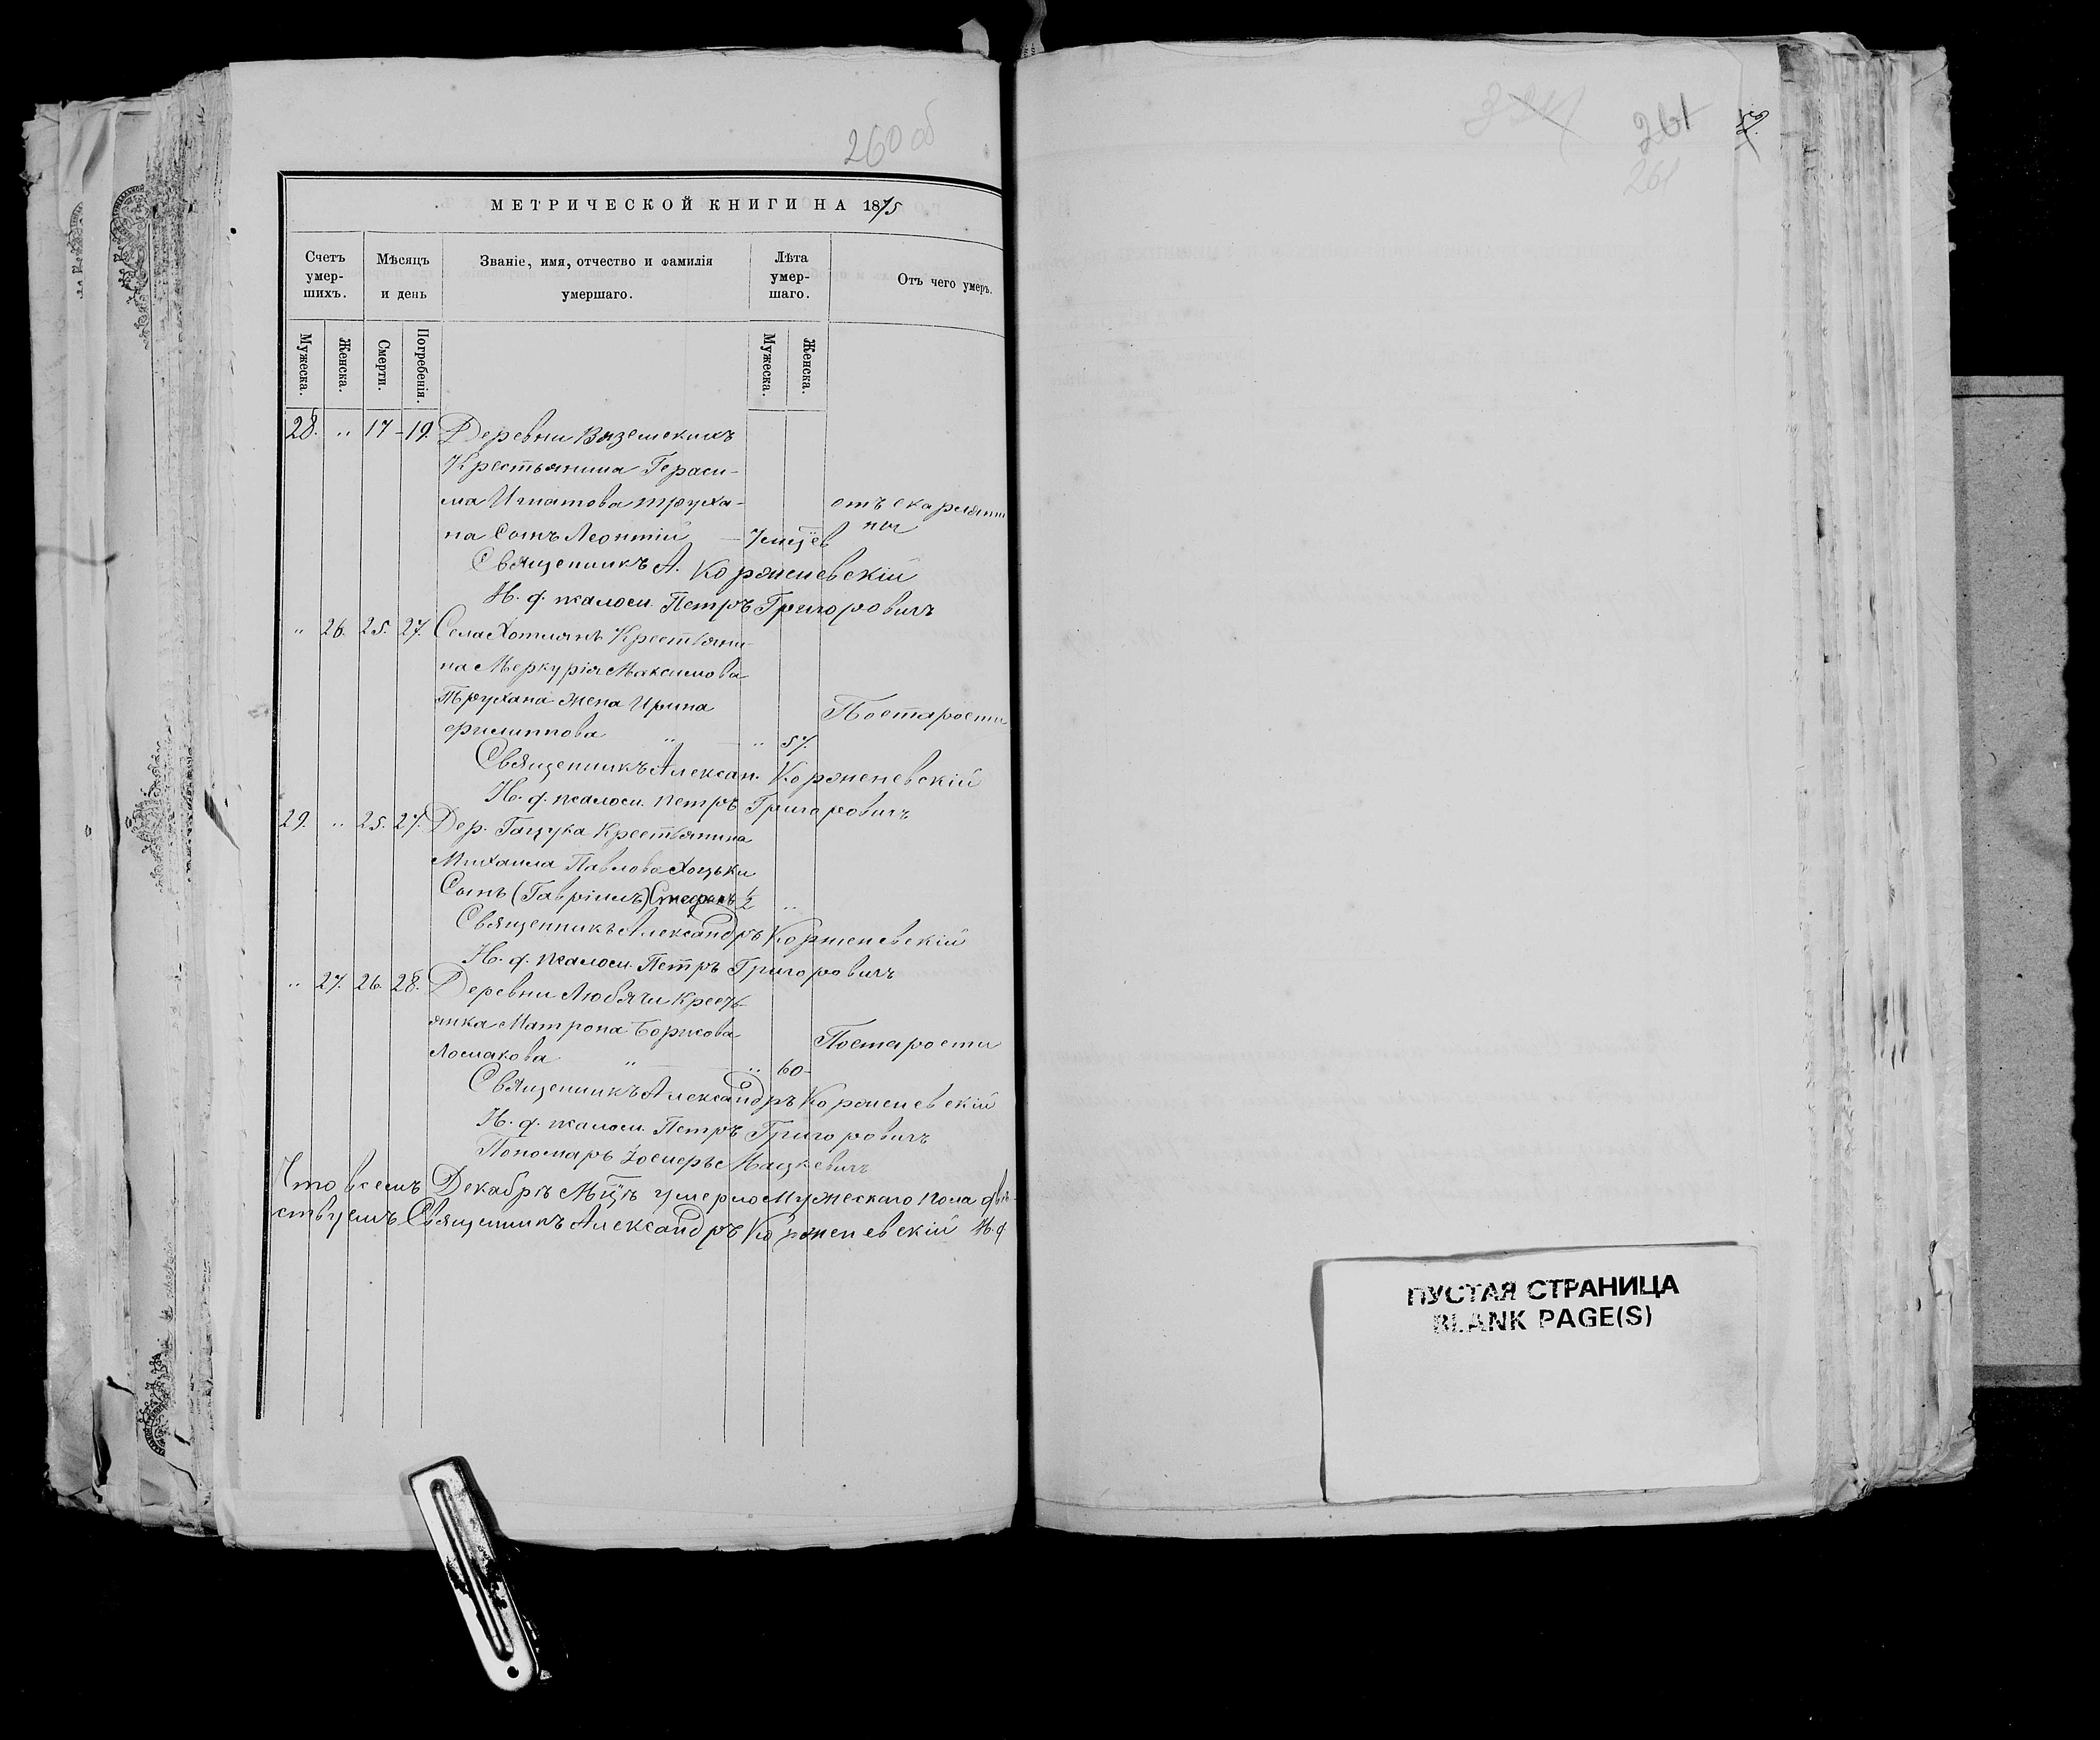 260 об
МЕТРИЧЕСКОЙ КНИГИ НА 1875
Счетъ умер-шихъ.
Мѣсяцъ и день
Званіе, имя, отчество и фамилія умершаго.
Лѣта умер-шаго.
Отъ чего умеръ.
Мужеска.
Женска.
Смерти.
Погребенія.
Мужеска.
Женска.
28. " 17-19. Деревни Вяземскихъ
Крестьянина Гераси-
ма Игнатова Труха-
на Сынъ Леонтій — 7 мцев
отъ скарлятины
Священникъ А. Корженевскій
И. д. псалом. Петръ Григоровичъ
" 26. 25. 27. Села Хотлянъ Крестьяни-
на Меркурія Максимова
Трухана жена Ирина
Филиппова " " 57.
По старости
Священникъ Алексан. Корженевскій
И. д. псалом. Петръ Григоровичъ
29. " 25. 27. Дер. Гацука Крестьянина
Михаила Павлова Хоцьки
Сынъ (Гавріилъ) Стефанъ ½ "
Священникъ Александръ Корженевскій
И. д. псалом. Петръ Григоровичъ
" 27. 26. 28. Деревни Любячи Кресть-
янка Матрона Борисова
Ломакова " " 60-
По старости
Священникъ Александръ Корженевскій
И. д. псалом. Петръ Григоровичъ
Пономарь Іосифъ Мацкевичъ
Что всемъ Декабрѣ Мцѣ умерло Мужескаго пола
ствуемъ Священникъ Александръ Корженевскій И. д
261
261
ПУСТАЯ СТРАНИЦА
BLANK PAGE(S)